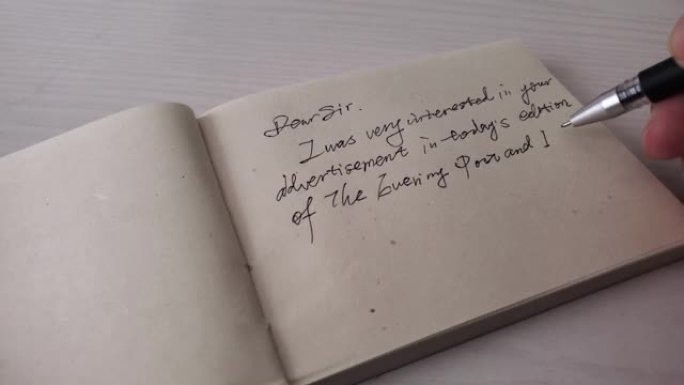 Dear Sir.
I was very interested in your
advertisement in today's edition
of The Evening Post and I